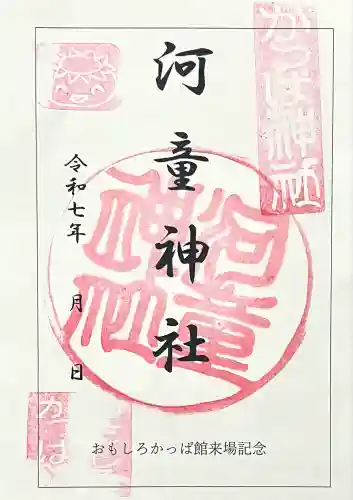 かっぱ神社
河童神社
令和七年 月 日
河童神社
おもしろかっぱ館来場記念